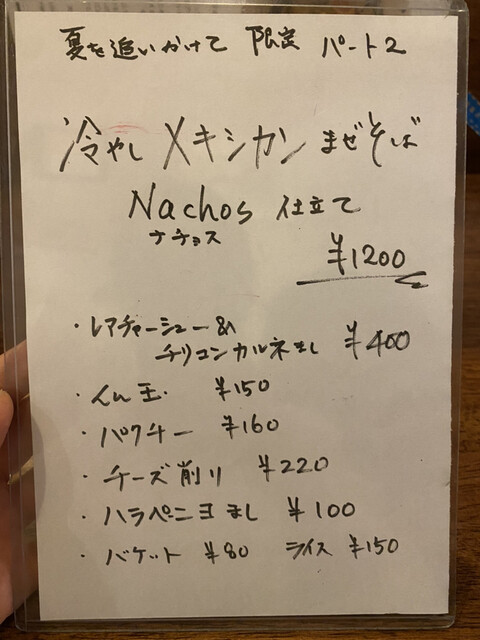 夏を追いかけて 限定 パート2
冷やし メキシカン まぜそば
Nachos 仕立て
ナチョス
¥1200
・レアチャーシュー&
チリコンカルネまし ¥400
・くん玉 ¥150
・パクチー ¥160
・チーズ削り ¥220
・ハラペーニョまし ¥100
・バケット ¥80 ライス ¥150